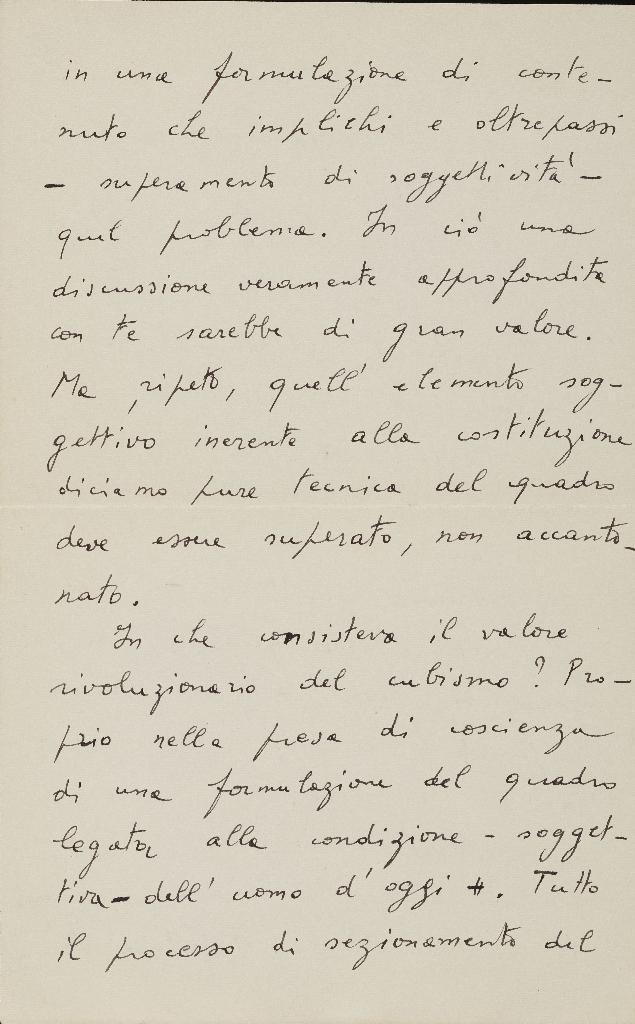 in una formulazione di conte-
nuto che implichi e oltrepassi
- superamento di soggettività -
quel problema. In ciò una
discussione veramente approfondita
con te sarebbe di gran valore.
Ma, ripeto, quell' elemento sog-
gettivo inerente alla costituzione
diciamo pure tecnica del quadro
deve essere superato, non accanto-
nato.
In che consisteva il valore
rivoluzionario del cubismo? Pro-
prio nella presa di coscienza
di una formulazione del quadro
legata alla condizione - sogget-
tiva - dell' uomo d' oggi #. Tutto
il processo di sezionamento del